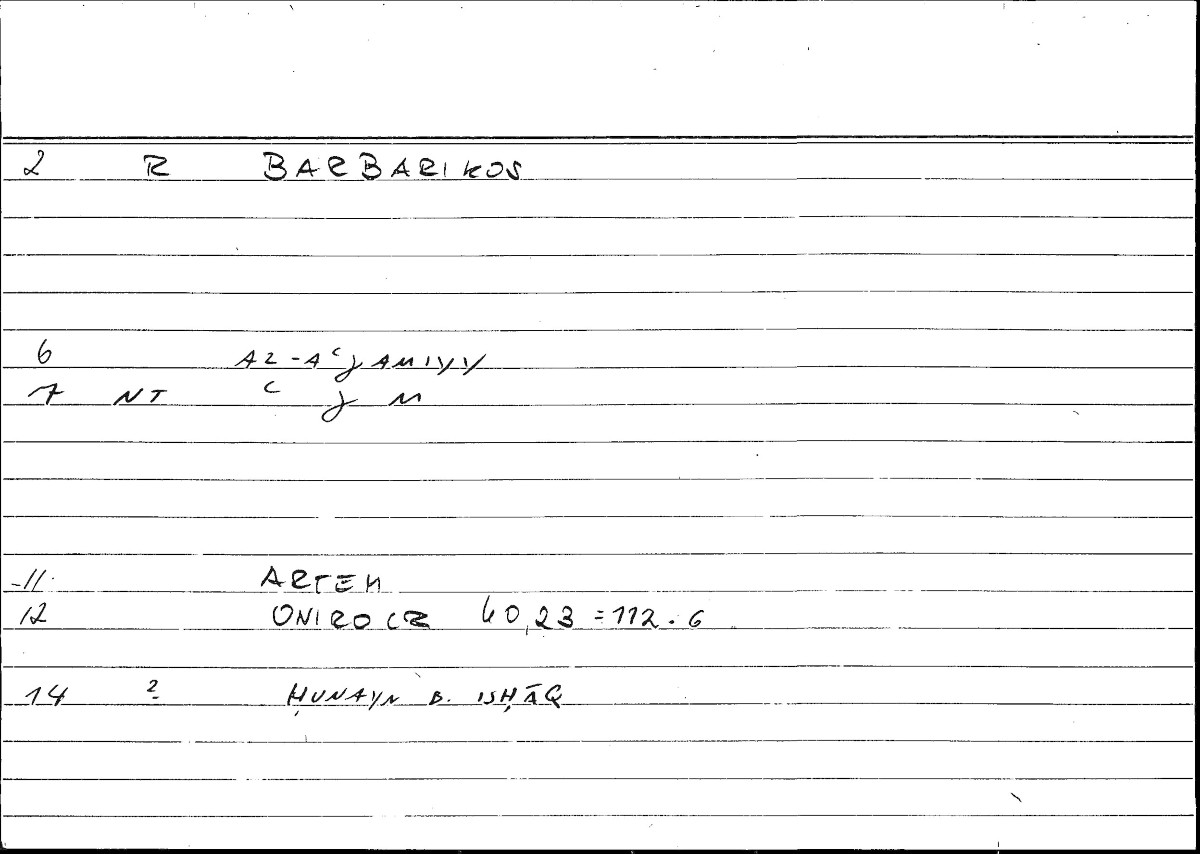 2 R BARBARIKOS
6 AL-AʿJAMIYY
7 NT ʿ J M
11 ARTEM
12 ONIROCR 40,23 = 112.6
14 2 ḤUNAYN B. ISḤĀQ